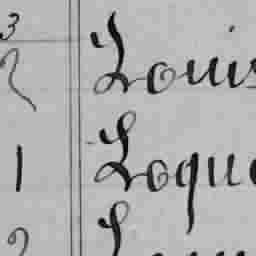 3
2 Louis
1 Loque
2